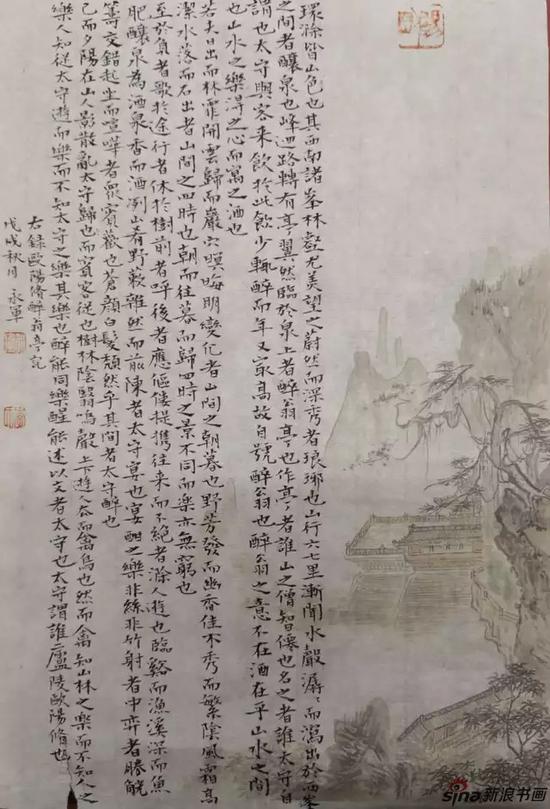 環滁皆山也其西南諸峯林壑尤美望之蔚然而深秀者琅琊也山行六七里漸聞水聲潺々而瀉出於兩峯
之間者釀泉也峰迴路轉有亭翼然臨於泉上者醉翁亭也作亭者誰山之僧智僊也名之者誰太守自
謂也太守與客来飲於此飲少輒醉而年又最高故自號醉翁也醉翁之意不在酒在乎山水之間
也山水之樂得之心而寓之酒也
若夫日出而林霏開雲歸而巖穴暝晦明變化者山間之朝暮也野芳發而幽香佳木秀而繁陰風霜高
潔水落而石出者山間之四時也朝而往暮而歸四時之景不同而樂亦無窮也
至於負者歌於途行者休於樹前者呼後者應傴僂提攜往来而不絕者滁人遊也臨谿而漁溪深而魚
肥釀泉為酒泉香而酒洌山肴野蔌雜然而前陳者太守宴也宴酣之樂非絲非竹射者中弈者勝觥
籌交錯起坐而喧嘩者眾賓歡也蒼顏白髮頹然乎其間者太守醉也
已而夕陽在山人影散亂太守歸也而賓客從也樹林陰翳鳴聲上下遊人去而禽鳥也然而禽知山林之樂而不知人之
樂人知從太守遊而樂而不知太守之樂其樂也醉能同樂醒能述以文者太守也太守謂誰廬陵歐陽脩也
右錄歐陽脩醉翁亭記
戊戌秋月永軍
sina新浪书画